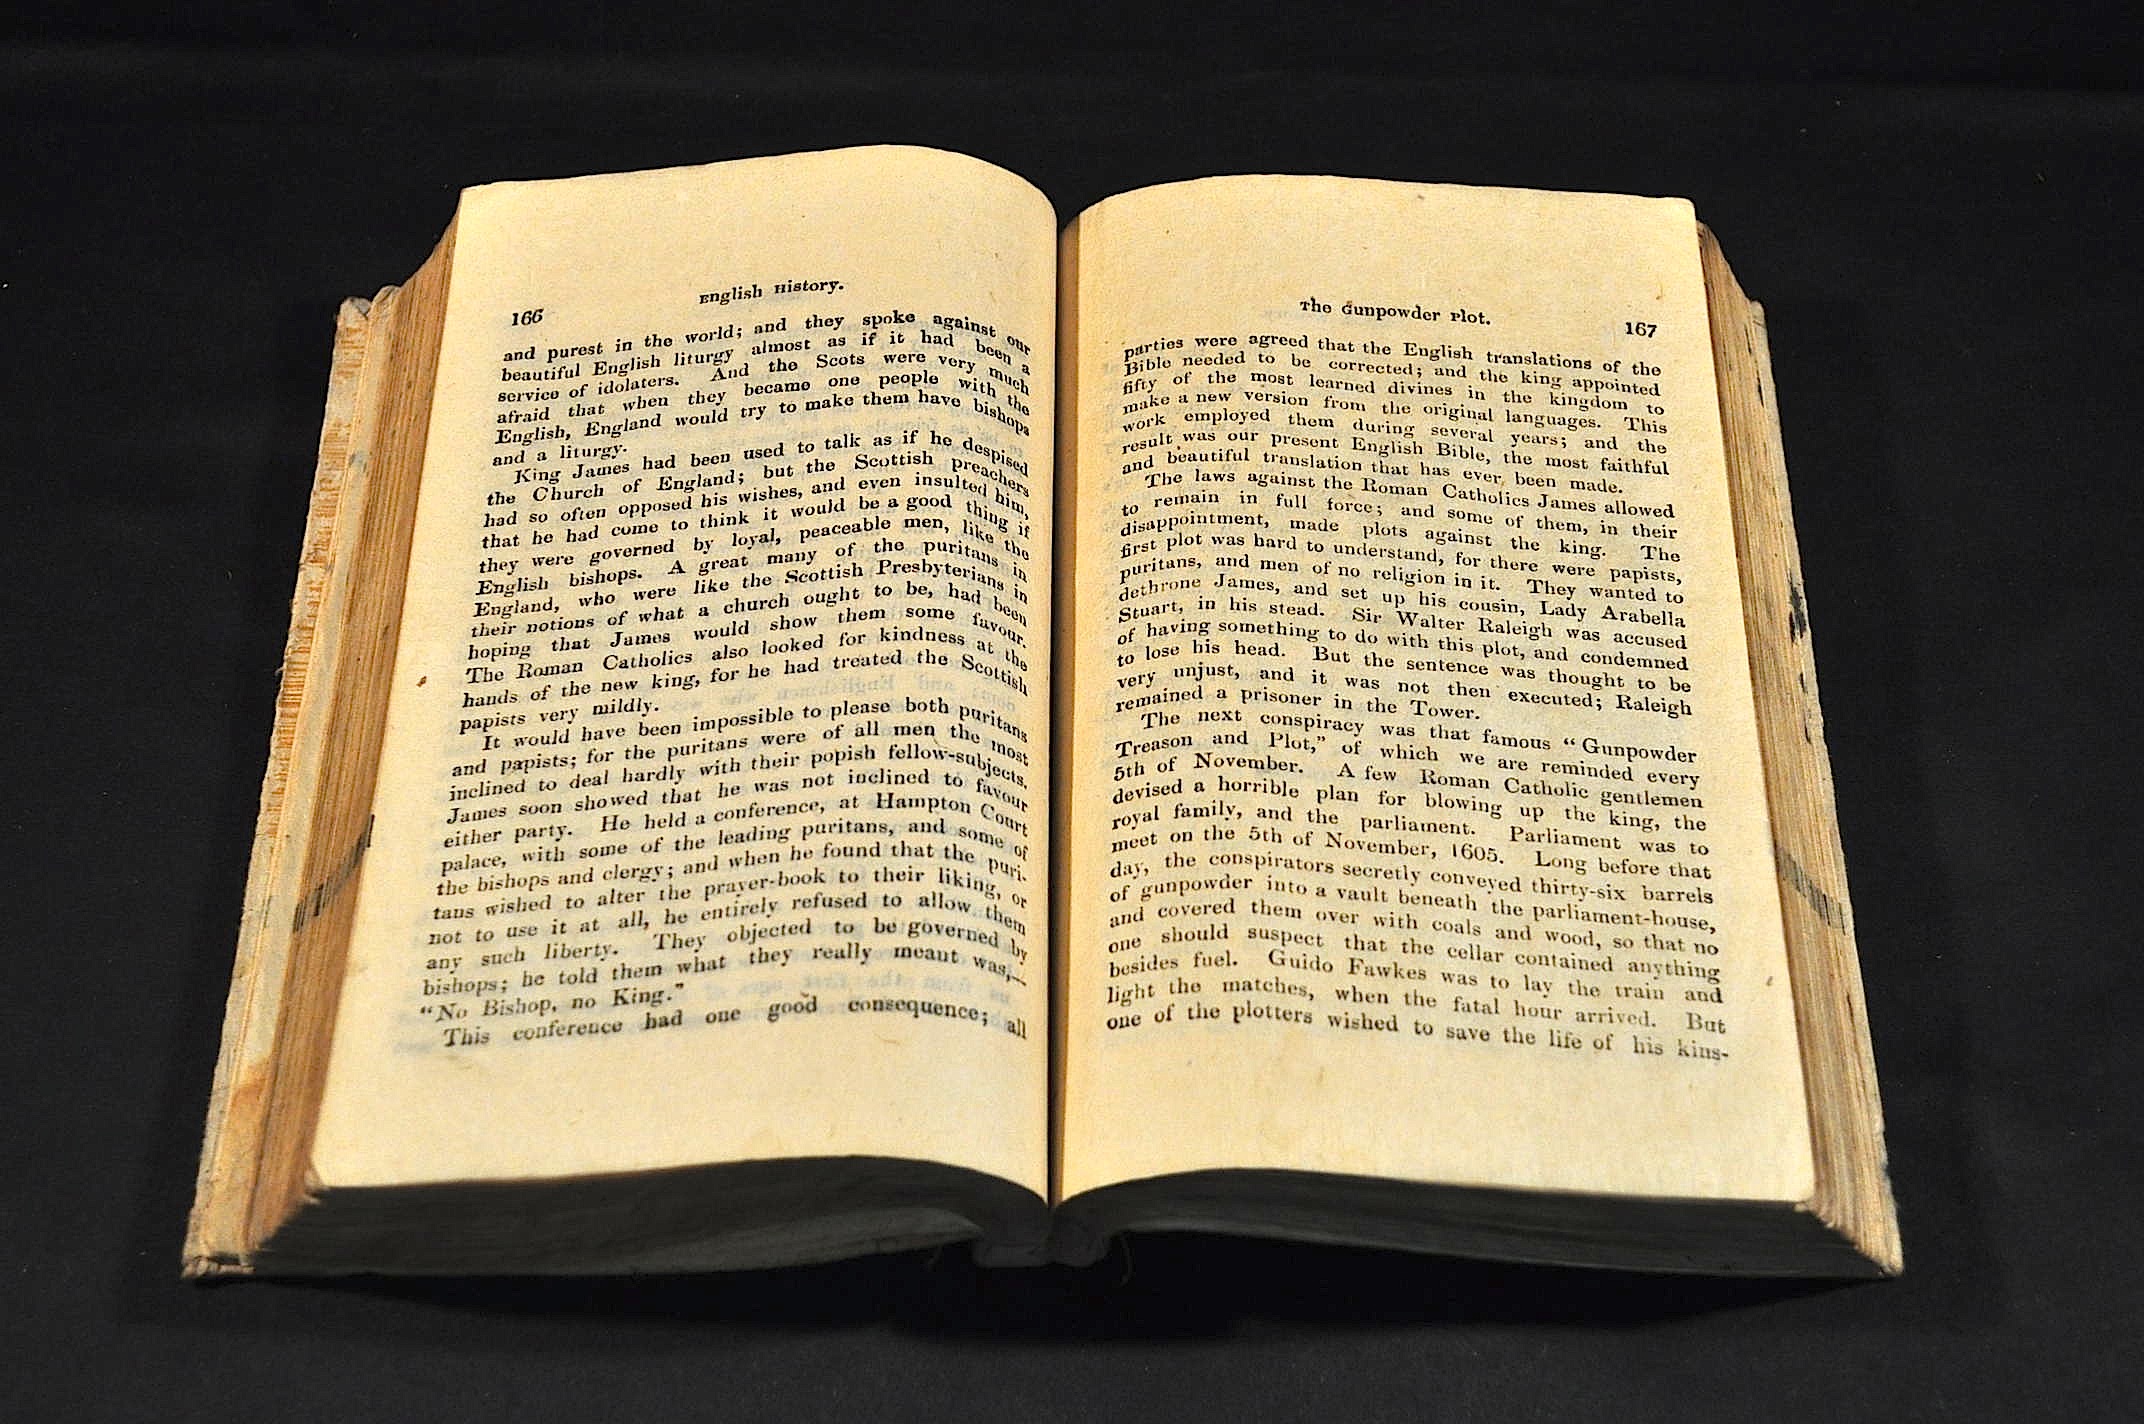 166
English History.
and purest in the world; and they spoke against our
beautiful English liturgy almost as if it had been a
service of idolaters. And the Scots were very much
afraid that when they became one people with the
English, England would try to make them have bishops
and a liturgy.
King James had been used to talk as if he despised
the Church of England; but the Scottish preachers
had so often opposed his wishes, and even insulted him,
that he had come to think it would be a good thing if
they were governed by loyal, peaceable men, like the
English bishops. A great many of the puritans in
England, who were like the Scottish Presbyterians in
their notions of what a church ought to be, had been
hoping that James would show them some favour.
The Roman Catholics also looked for kindness at the
hands of the new king, for he had treated the Scottish
papists very mildly.
It would have been impossible to please both puritans
and papists; for the puritans were of all men the most
inclined to deal hardly with their popish fellow-subjects.
James soon showed that he was not inclined to favour
either party. He held a conference, at Hampton Court
palace, with some of the leading puritans, and some of
the bishops and clergy; and when he found that the puri-
tans wished to alter the prayer-book to their liking, or
not to use it at all, he entirely refused to allow them
any such liberty. They objected to be governed by
bishops; he told them what they really meant was,—
"No Bishop, no King."
This conference had one good consequence; all
The Gunpowder Plot.
167
parties were agreed that the English translations of the
Bible needed to be corrected; and the king appointed
fifty of the most learned divines in the kingdom to
make a new version from the original languages. This
work employed them during several years; and the
result was our present English Bible, the most faithful
and beautiful translation that has ever been made.
The laws against the Roman Catholics James allowed
to remain in full force; and some of them, in their
disappointment, made plots against the king. The
first plot was hard to understand, for there were papists,
puritans, and men of no religion in it. They wanted to
dethrone James, and set up his cousin, Lady Arabella
Stuart, in his stead. Sir Walter Raleigh was accused
of having something to do with this plot, and condemned
to lose his head. But the sentence was thought to be
very unjust, and it was not then executed; Raleigh
remained a prisoner in the Tower.
The next conspiracy was that famous "Gunpowder
Treason and Plot," of which we are reminded every
5th of November. A few Roman Catholic gentlemen
devised a horrible plan for blowing up the king, the
royal family, and the parliament. Parliament was to
meet on the 5th of November, 1605. Long before that
day, the conspirators secretly conveyed thirty-six barrels
of gunpowder into a vault beneath the parliament-house,
and covered them over with coals and wood, so that no
one should suspect that the cellar contained anything
besides fuel. Guido Fawkes was to lay the train and
light the matches, when the fatal hour arrived. But
one of the plotters wished to save the life of his kins-